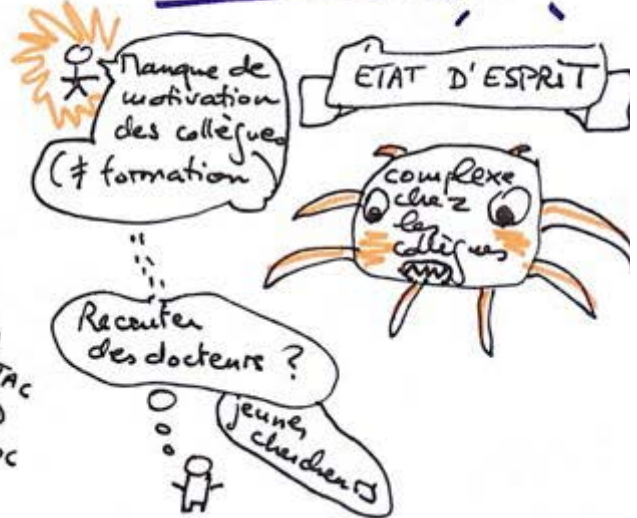 Manque de
motivation
des collègues
(≠ formation)
ÉTAT D'ESPRIT
complexe
chez
les
collègues
Recruter
des docteurs ?
jeunes
chercheurs